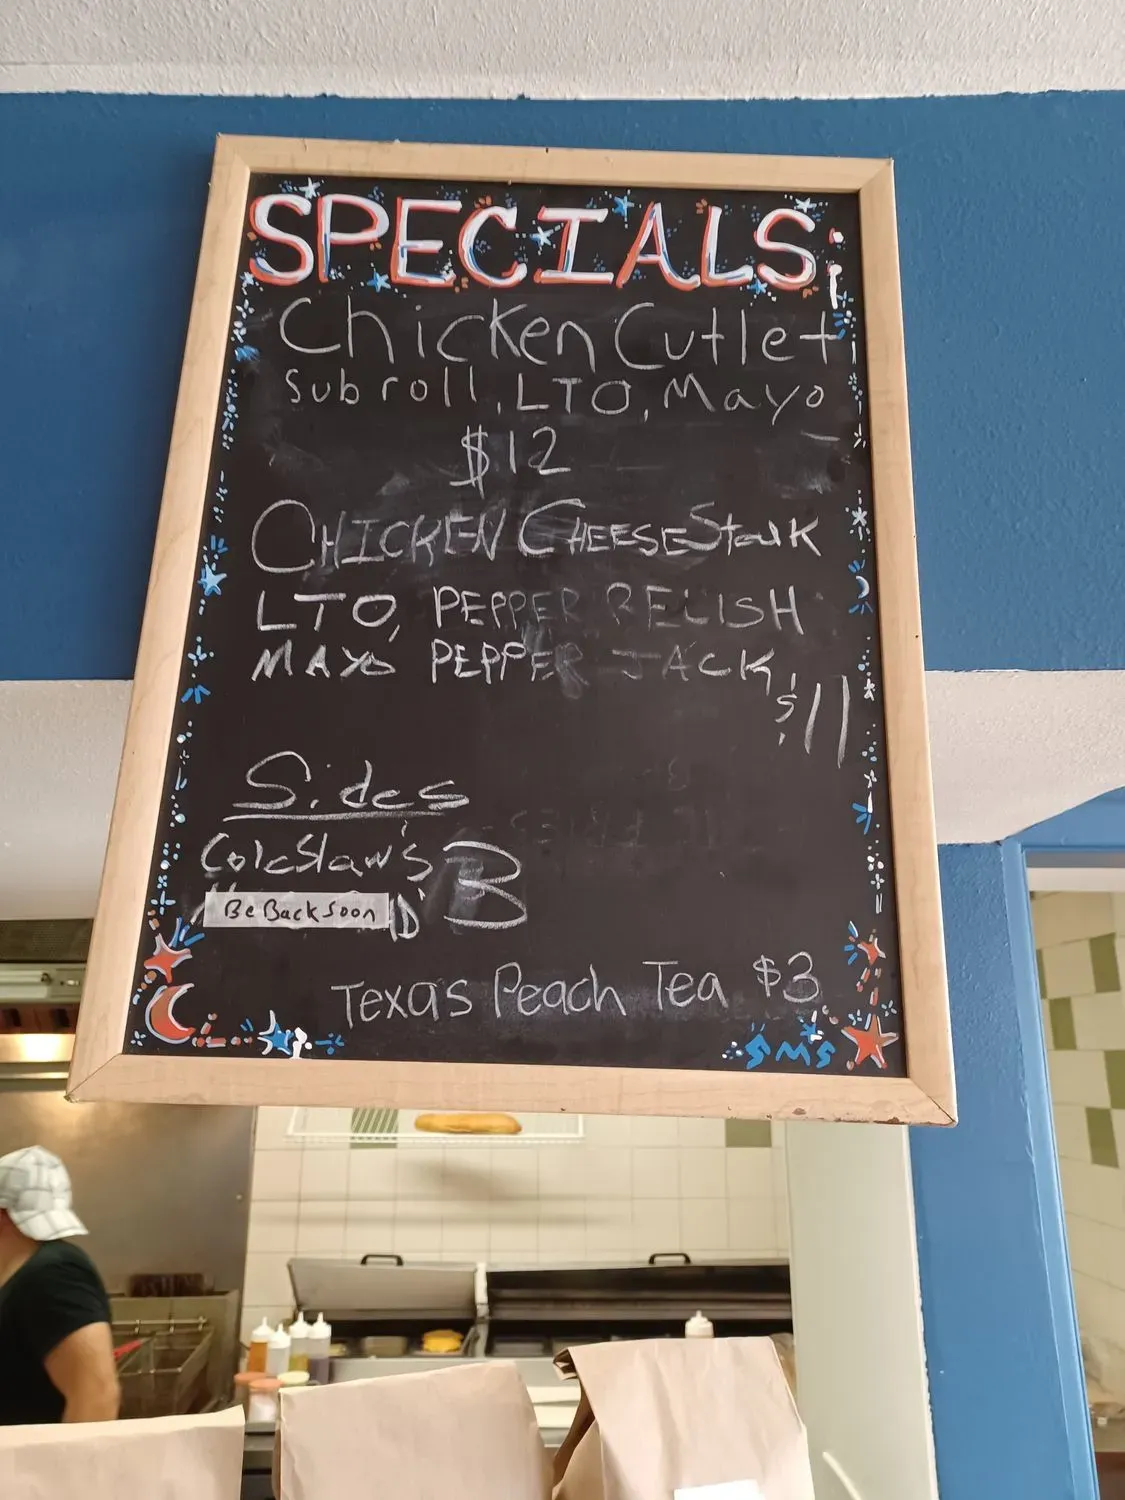 SPECIALS:
Chicken Cutlet
Sub roll, LTO, Mayo
$12
CHICKEN CHEESE Steak
LTO, PEPPER RELISH
MAYO PEPPER JACK,
$11
Sides
Coleslaw's 3
Be Back Soon
Texas Peach Tea $3
SMS